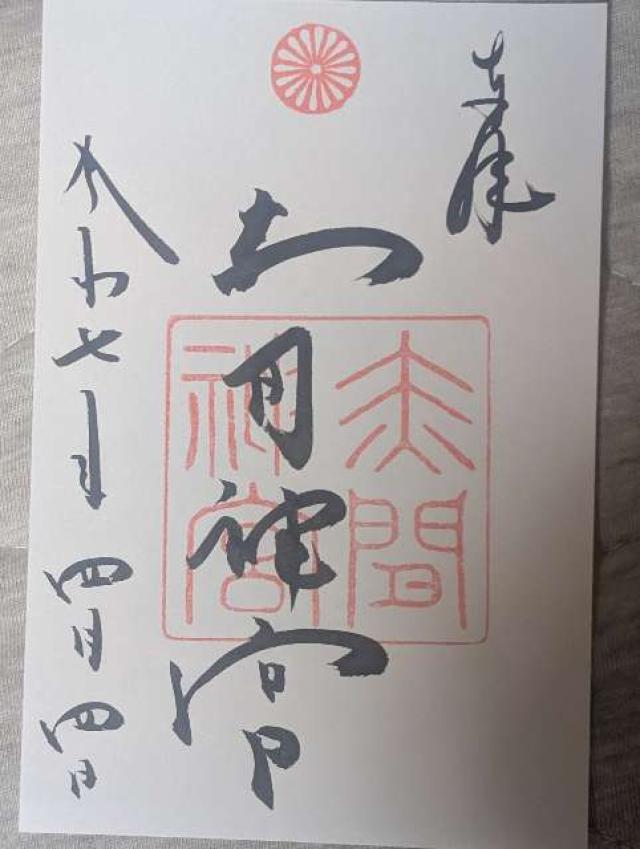 奉拝
赤間神宮
赤間
神宮
令和七年四月四日